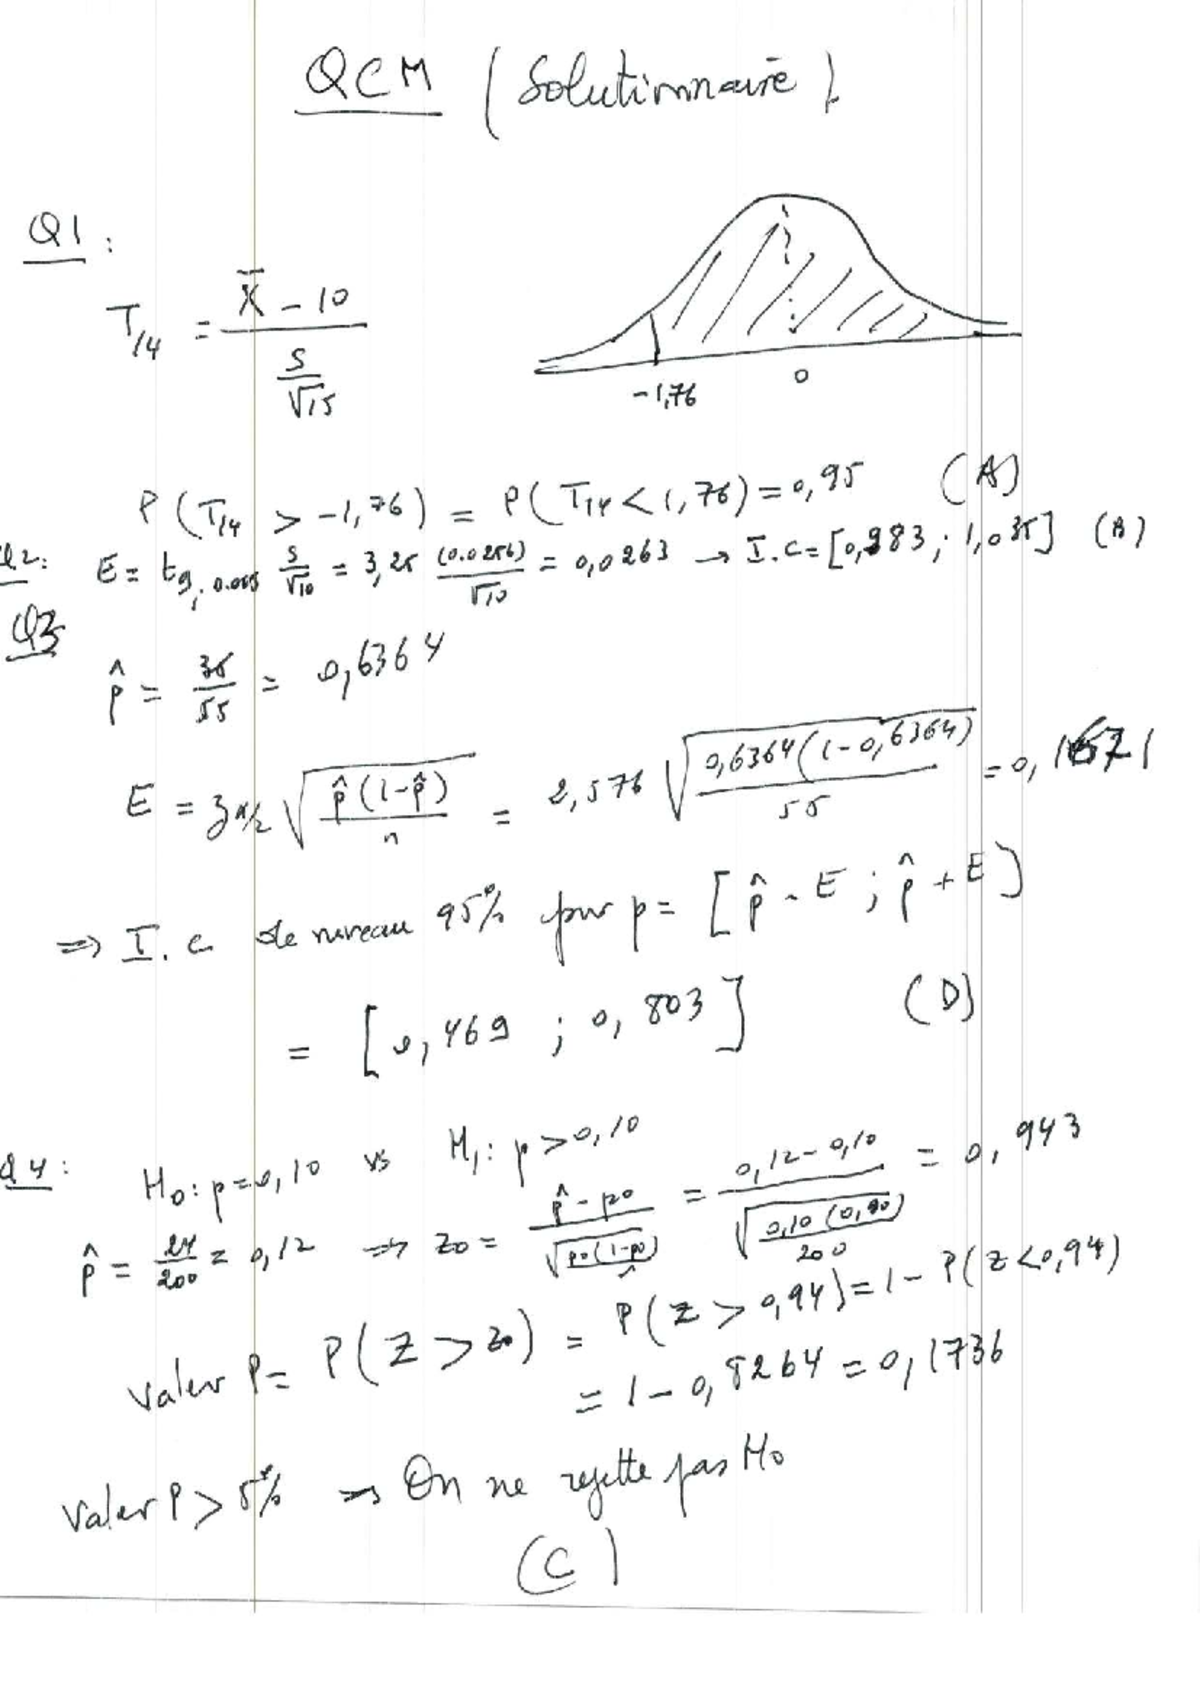 QCM (Solutionnaire)
Q1 :
T14 = (X̄ - 10) / (S/√15)
-1,76 0
P(T14 > -1,76) = P(T14 < 1,76) = 0,95 (A)
Q2: E = t9, 0.005 S/√10 = 3,25 (0.0256)/√10 = 0,0263 → I.C = [0,983 ; 1,035] (B)
Q3
p̂ = 35/55 = 0,6364
E = zα/2 √(p̂(1-p̂)/n) = 2,576 √(0,6364(1-0,6364)/55) = 0,1671
⇒ I.c de niveau 95% pour p = [p̂ - E ; p̂ + E]
= [0,469 ; 0,803] (D)
Q4: H0: p=0,10 vs H1: p>0,10
p̂ = 24/200 = 0,12 ⇒ z0 = (p̂ - p0)/√(p0(1-p0)/n) = (0,12-0,10)/√(0,10(0,90)/200) = 0,943
Valeur P = P(Z > z0) = P(Z > 0,94) = 1 - P(Z < 0,94)
= 1 - 0,8264 = 0,1736
Valeur P > 5% ⇒ On ne rejette pas H0
(C)